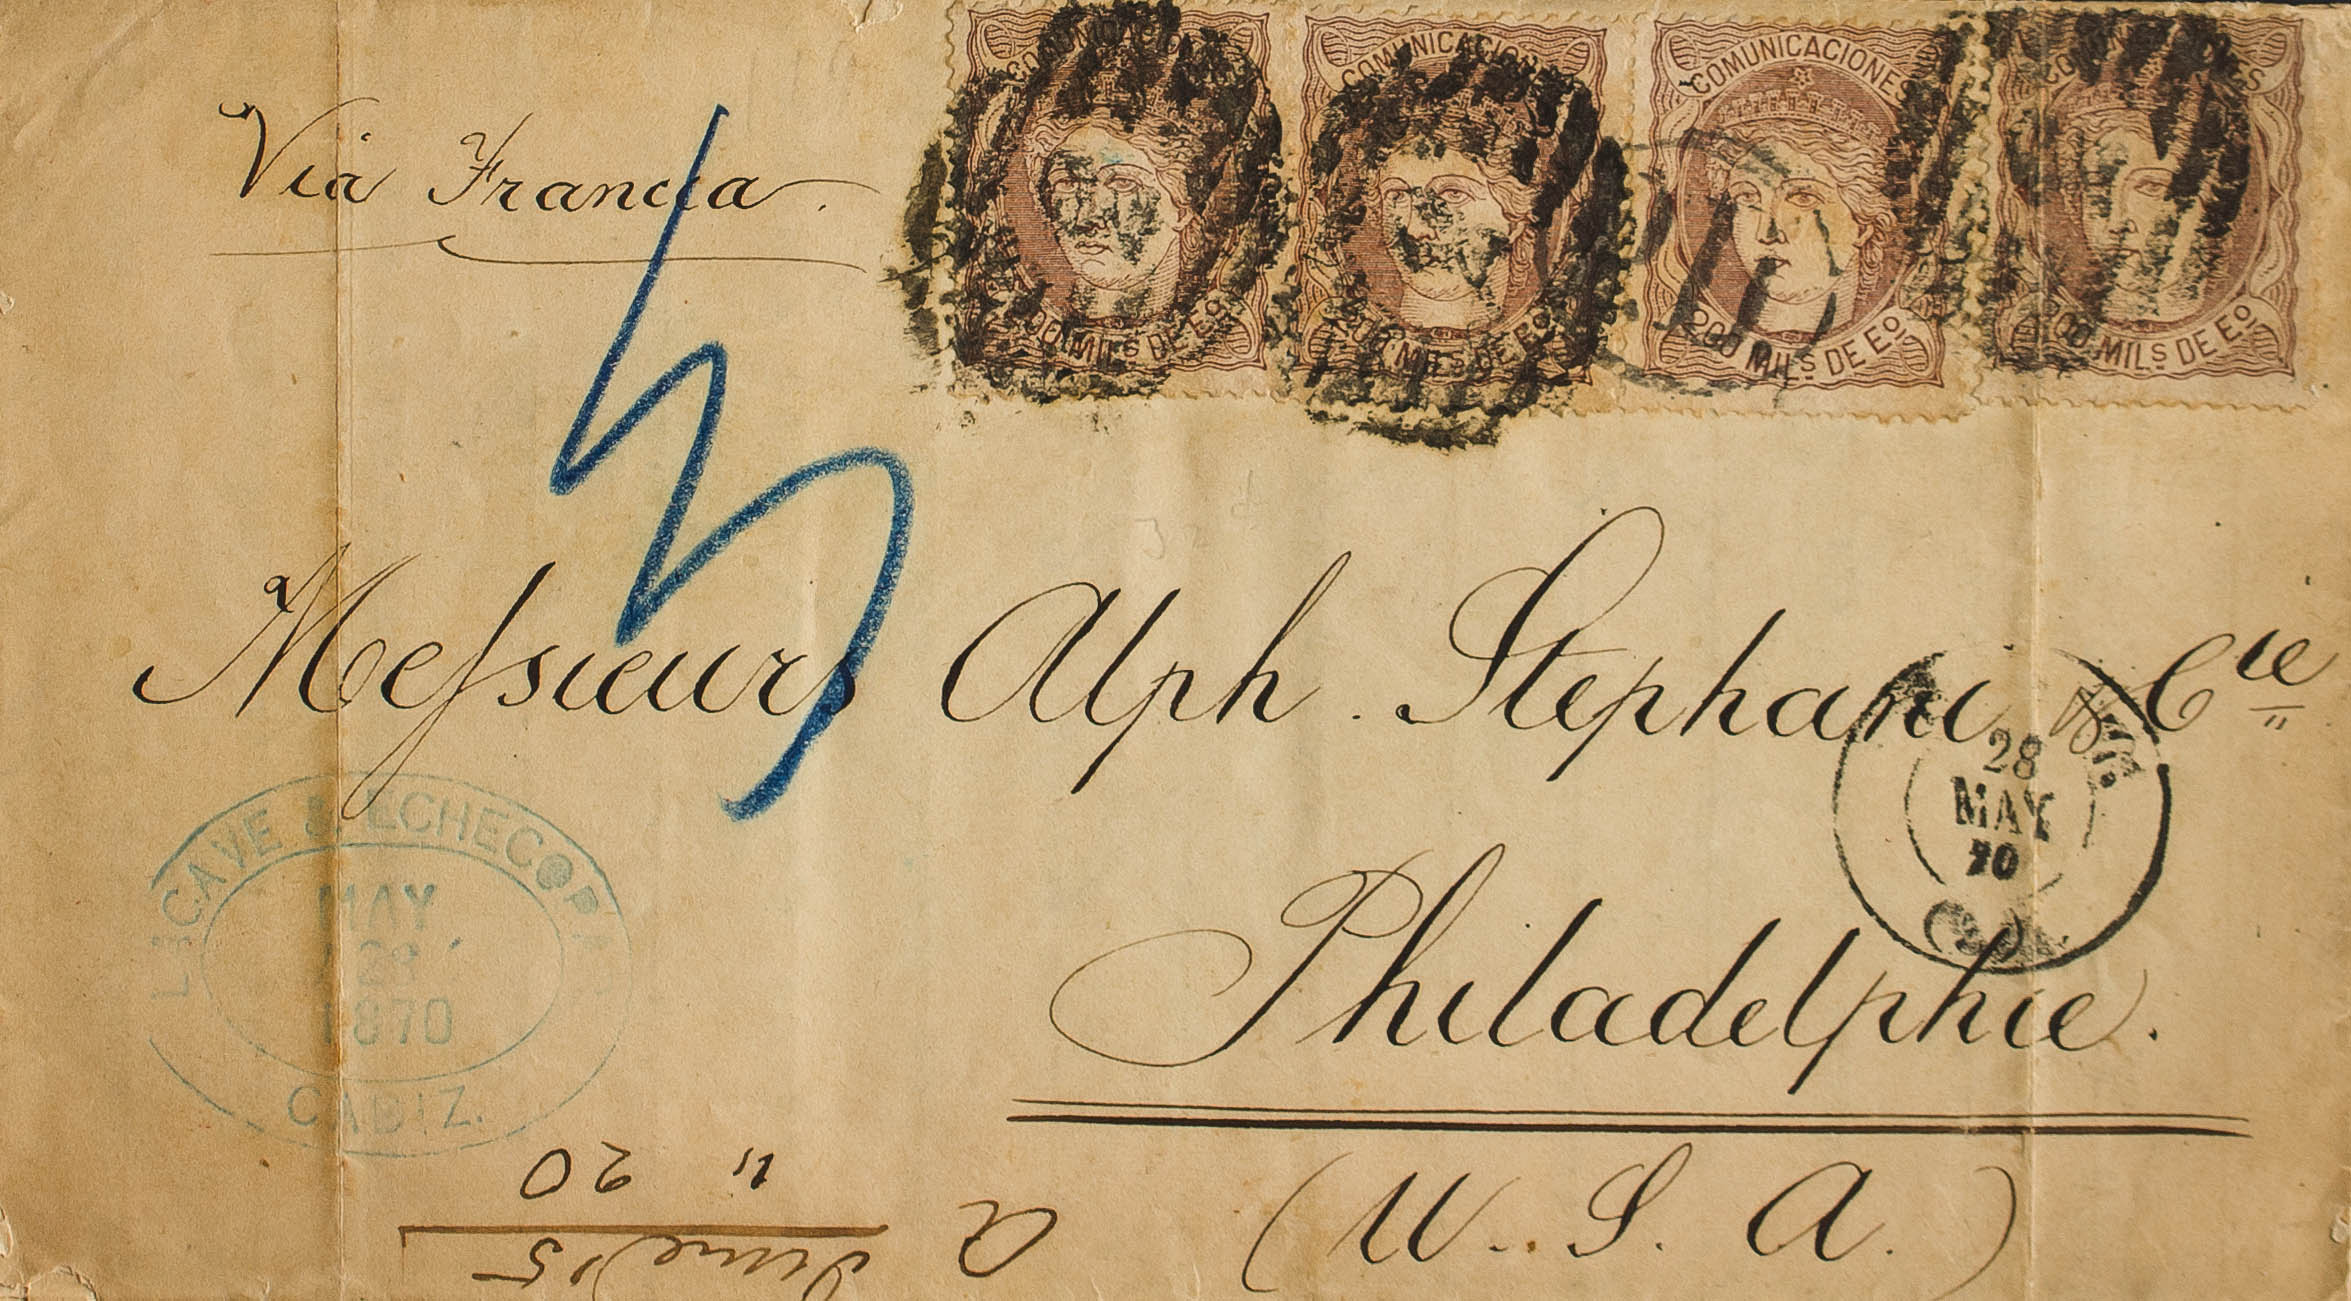 COMUNICACIONES COMUNICACIONES COMUNICACIONES COMUNICACIONES
200 MILS DE EO 200 MILS DE EO 200 MILS DE EO 200 MILS DE EO
Via Francia.
Messieurs Alph. Stephani & Cie
28
MAY
70
LACAVE & ECHECOPAR
MAY
28
1870
CADIZ.
Philadelphie.
(U. S. A.)
a June 15
" 20